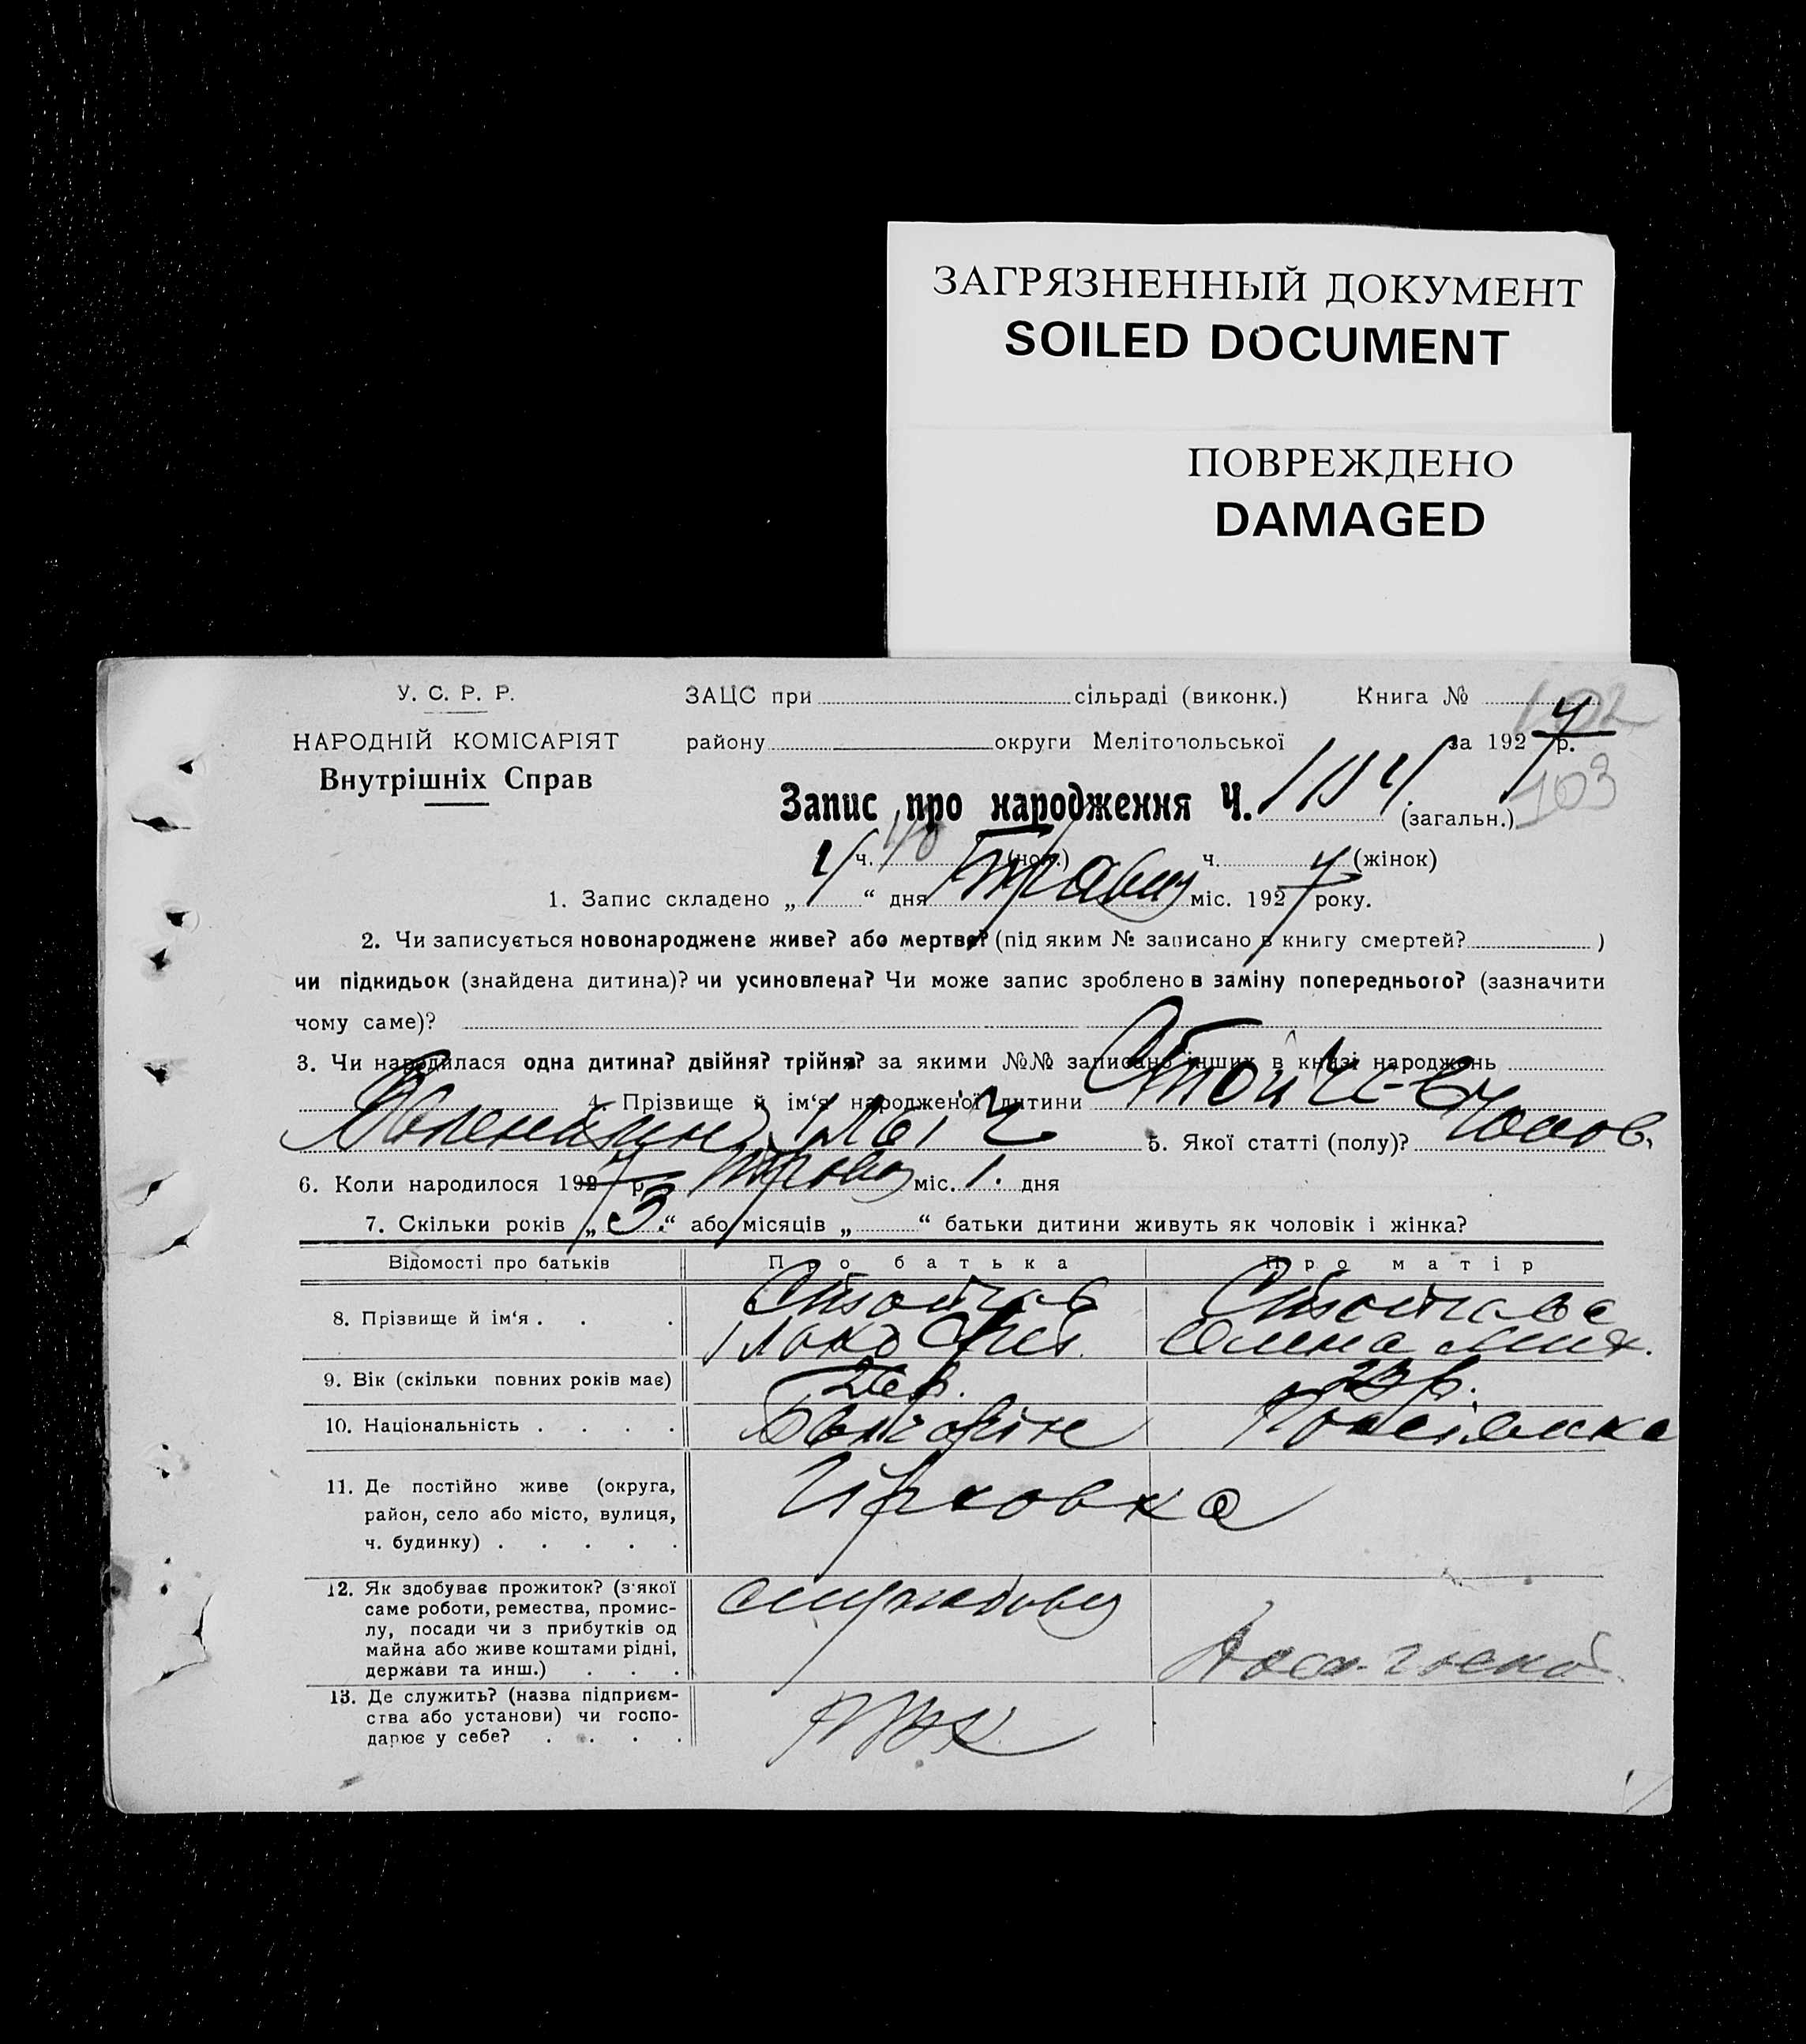 ЗАГРЯЗНЕННЫЙ ДОКУМЕНТ
SOILED DOCUMENT
ПОВРЕЖДЕНО
DAMAGED
У. С. Р. Р.
НАРОДНІЙ КОМІСАРІЯТ
Внутрішніх Справ
ЗАЦС при сільраді (виконк.) Книга №
102
району округи Мелітопольської за 1927 р.
103
Запис про народження Ч. (загальн.)
ч. (чол.) ч. (жінок)
1. Запис складено „4“ дня Травня міс. 1927 року.
2. Чи записується новонароджене живе? або мертве? (під яким № записано в книгу смертей? )
чи підкидьок (знайдена дитина)? чи усиновлена? Чи може запис зроблено в заміну попереднього? (зазначити
чому саме)?
3. Чи народилася одна дитина? двійня? трійня? за якими №№ записано інших в книзі народжень
4. Прізвище й ім‘я народженої дитини Стойчев
5. Якої статті (полу)? Чолов.
6. Коли народилося 1927 р. Травня міс. 1. дня
7. Скільки років „3.“ або місяців „ “ батьки дитини живуть як чоловік і жінка?
Відомості про батьків Про батька Про матір
8. Прізвище й ім‘я . . . Стойчев Стойчева
Олена Мих.
9. Вік (скільки повних років має) 26 р. 23 р.
10. Національність . . . . Болгарин
11. Де постійно живе (округа,
район, село або місто, вулиця,
ч. будинку) . . . . .
12. Як здобуває прожиток? (з‘якої
саме роботи, ремества, промис-
лу, посади чи з прибутків од
майна або живе коштами рідні,
держави та инш.) . . .
13. Де служить? (назва підприєм-
ства або установи) чи госпо-
дарює у себе? . . . .